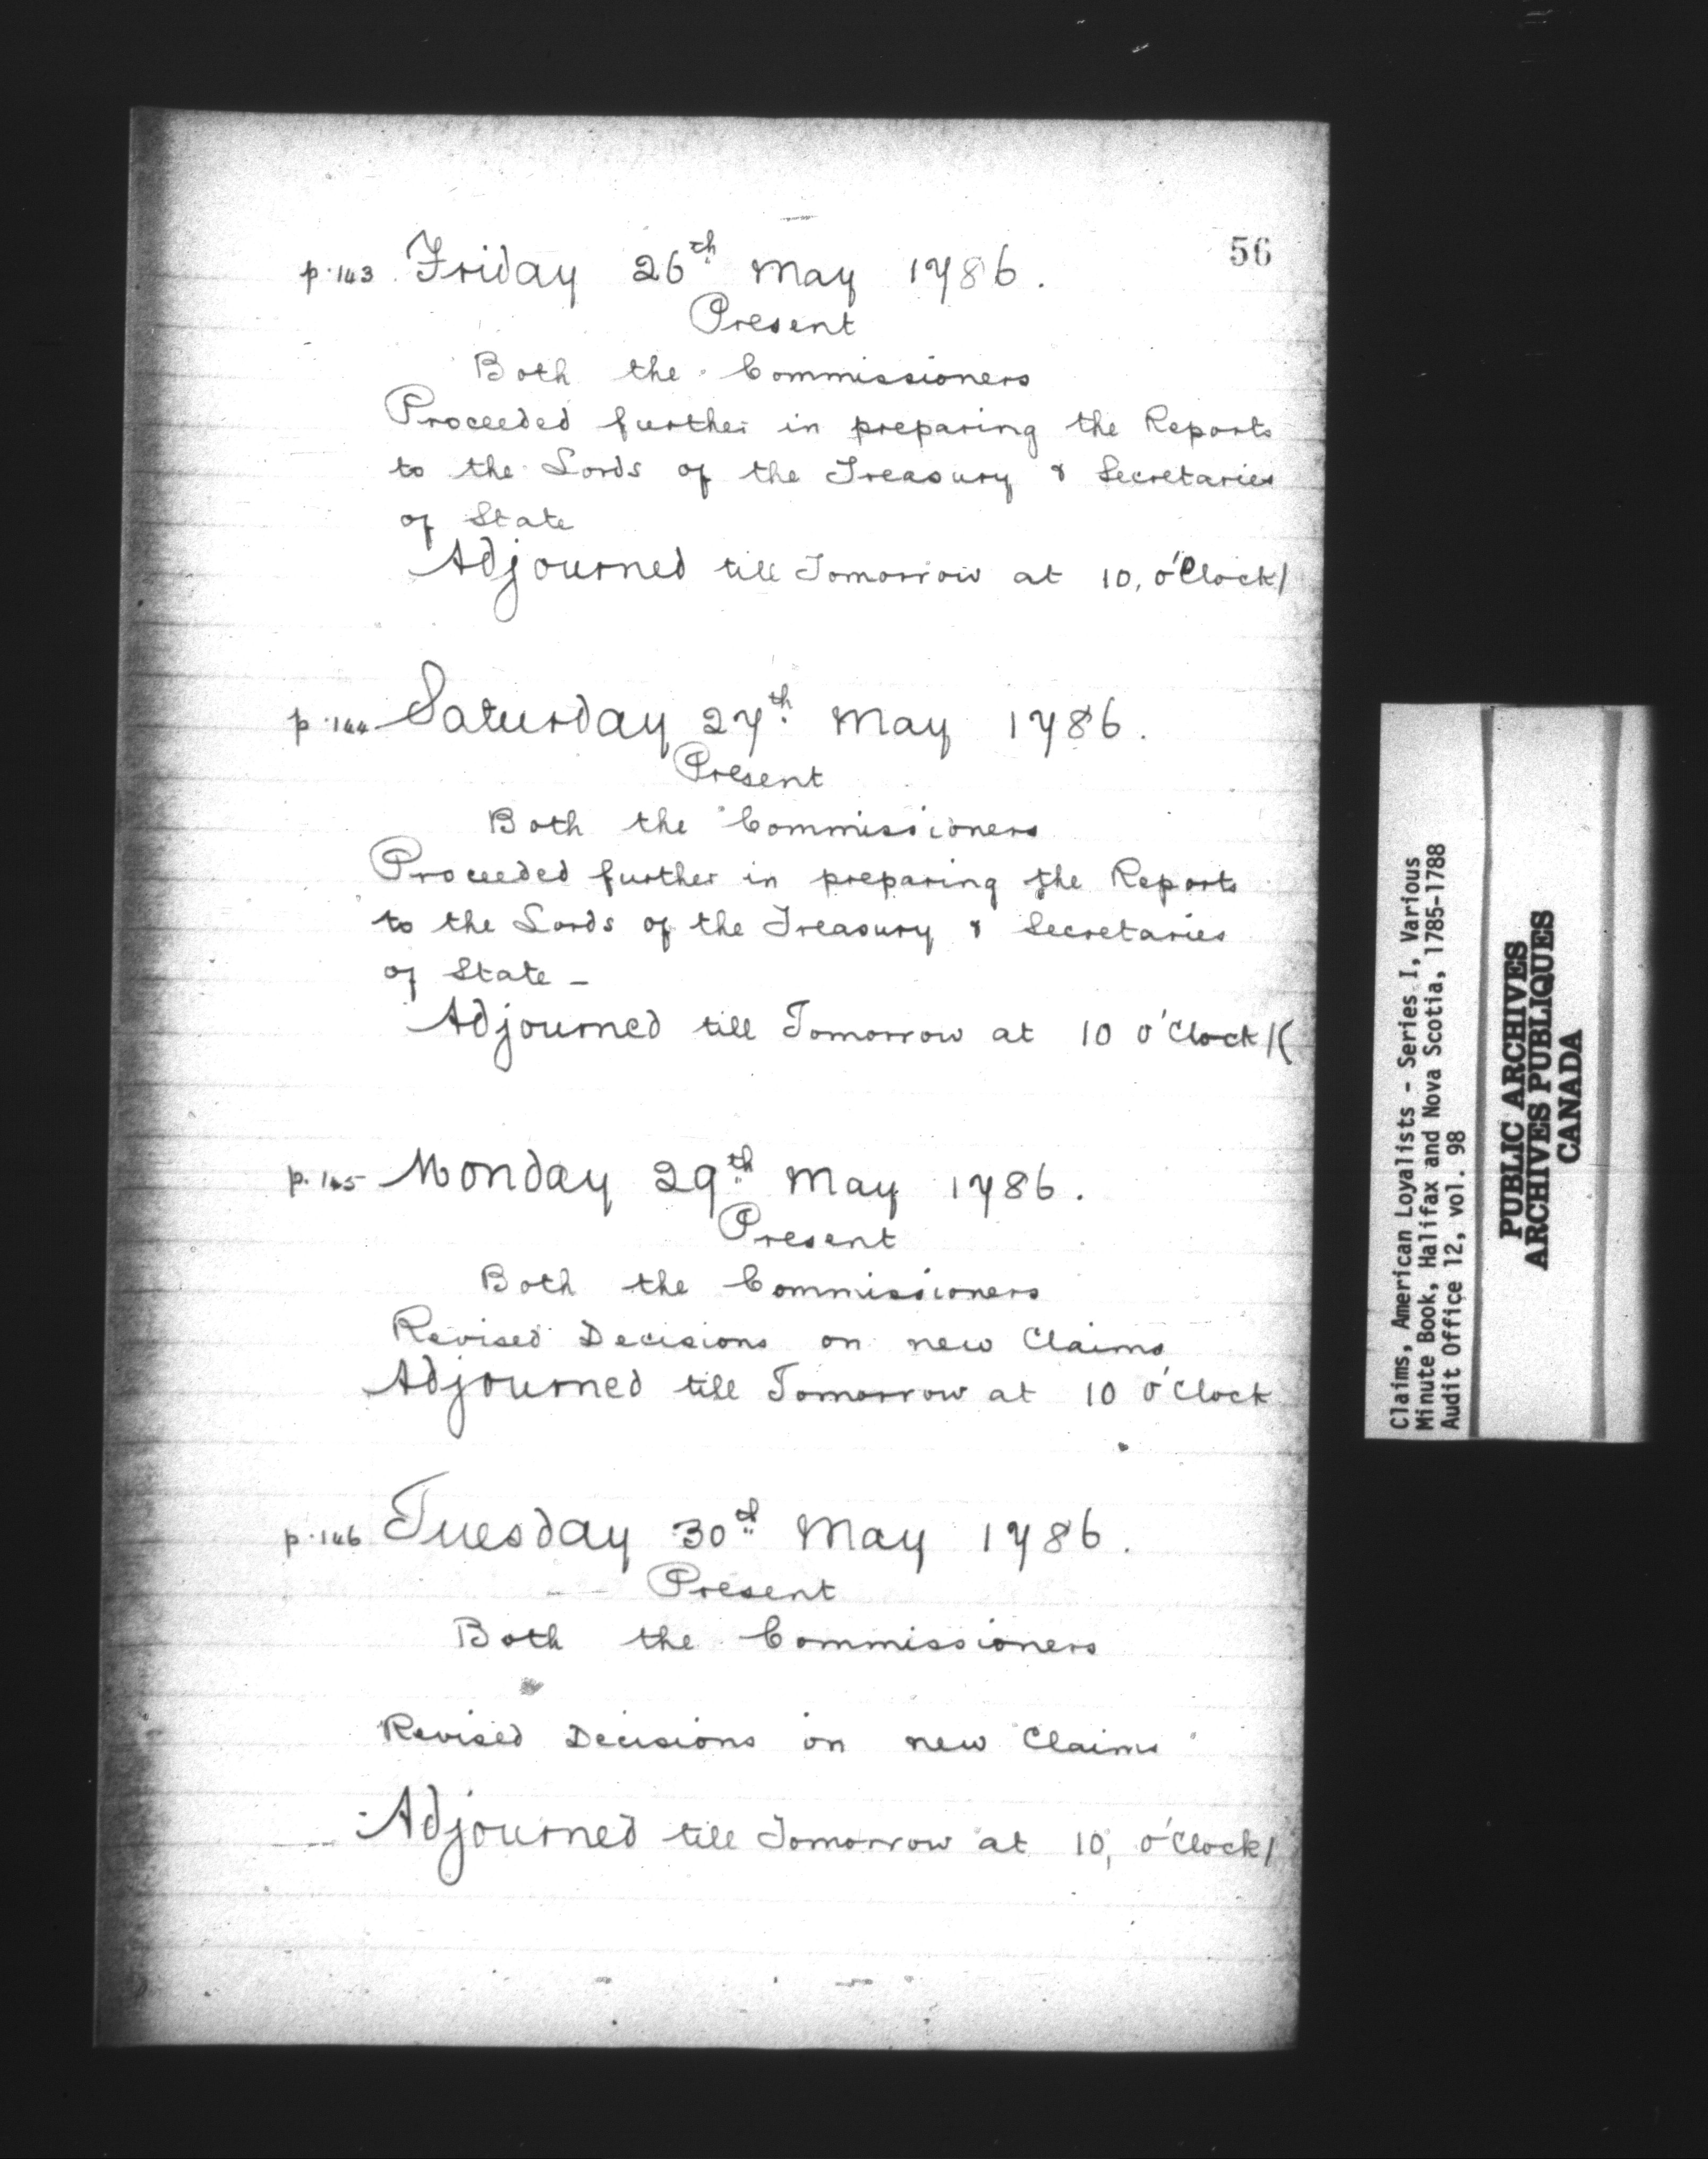 56
p. 143. Friday 26th May 1786.
Present
Both the Commissioners
Proceeded further in preparing the Reports
to the Lords of the Treasury & Secretaries
of State
Adjourned till Tomorrow at 10, o'Clock/
p. 144 Saturday 27th May 1786.
Present
Both the Commissioners
Proceeded further in preparing the Reports
to the Lords of the Treasury & Secretaries
of State -
Adjourned till Tomorrow at 10 o'Clock/(
p. 145 Monday 29th May 1786.
Present
Both the Commissioners
Revised Decisions on new Claims
Adjourned till Tomorrow at 10 o'Clock
p. 146 Tuesday 30th May 1786.
Present
Both the Commissioners
Revised Decisions on new Claims
Adjourned till Tomorrow at 10, o'Clock/
Claims, American Loyalists - Series I, Various
Minute Book, Halifax and Nova Scotia, 1785-1788
Audit Office 12, vol. 98
PUBLIC ARCHIVES
ARCHIVES PUBLIQUES
CANADA